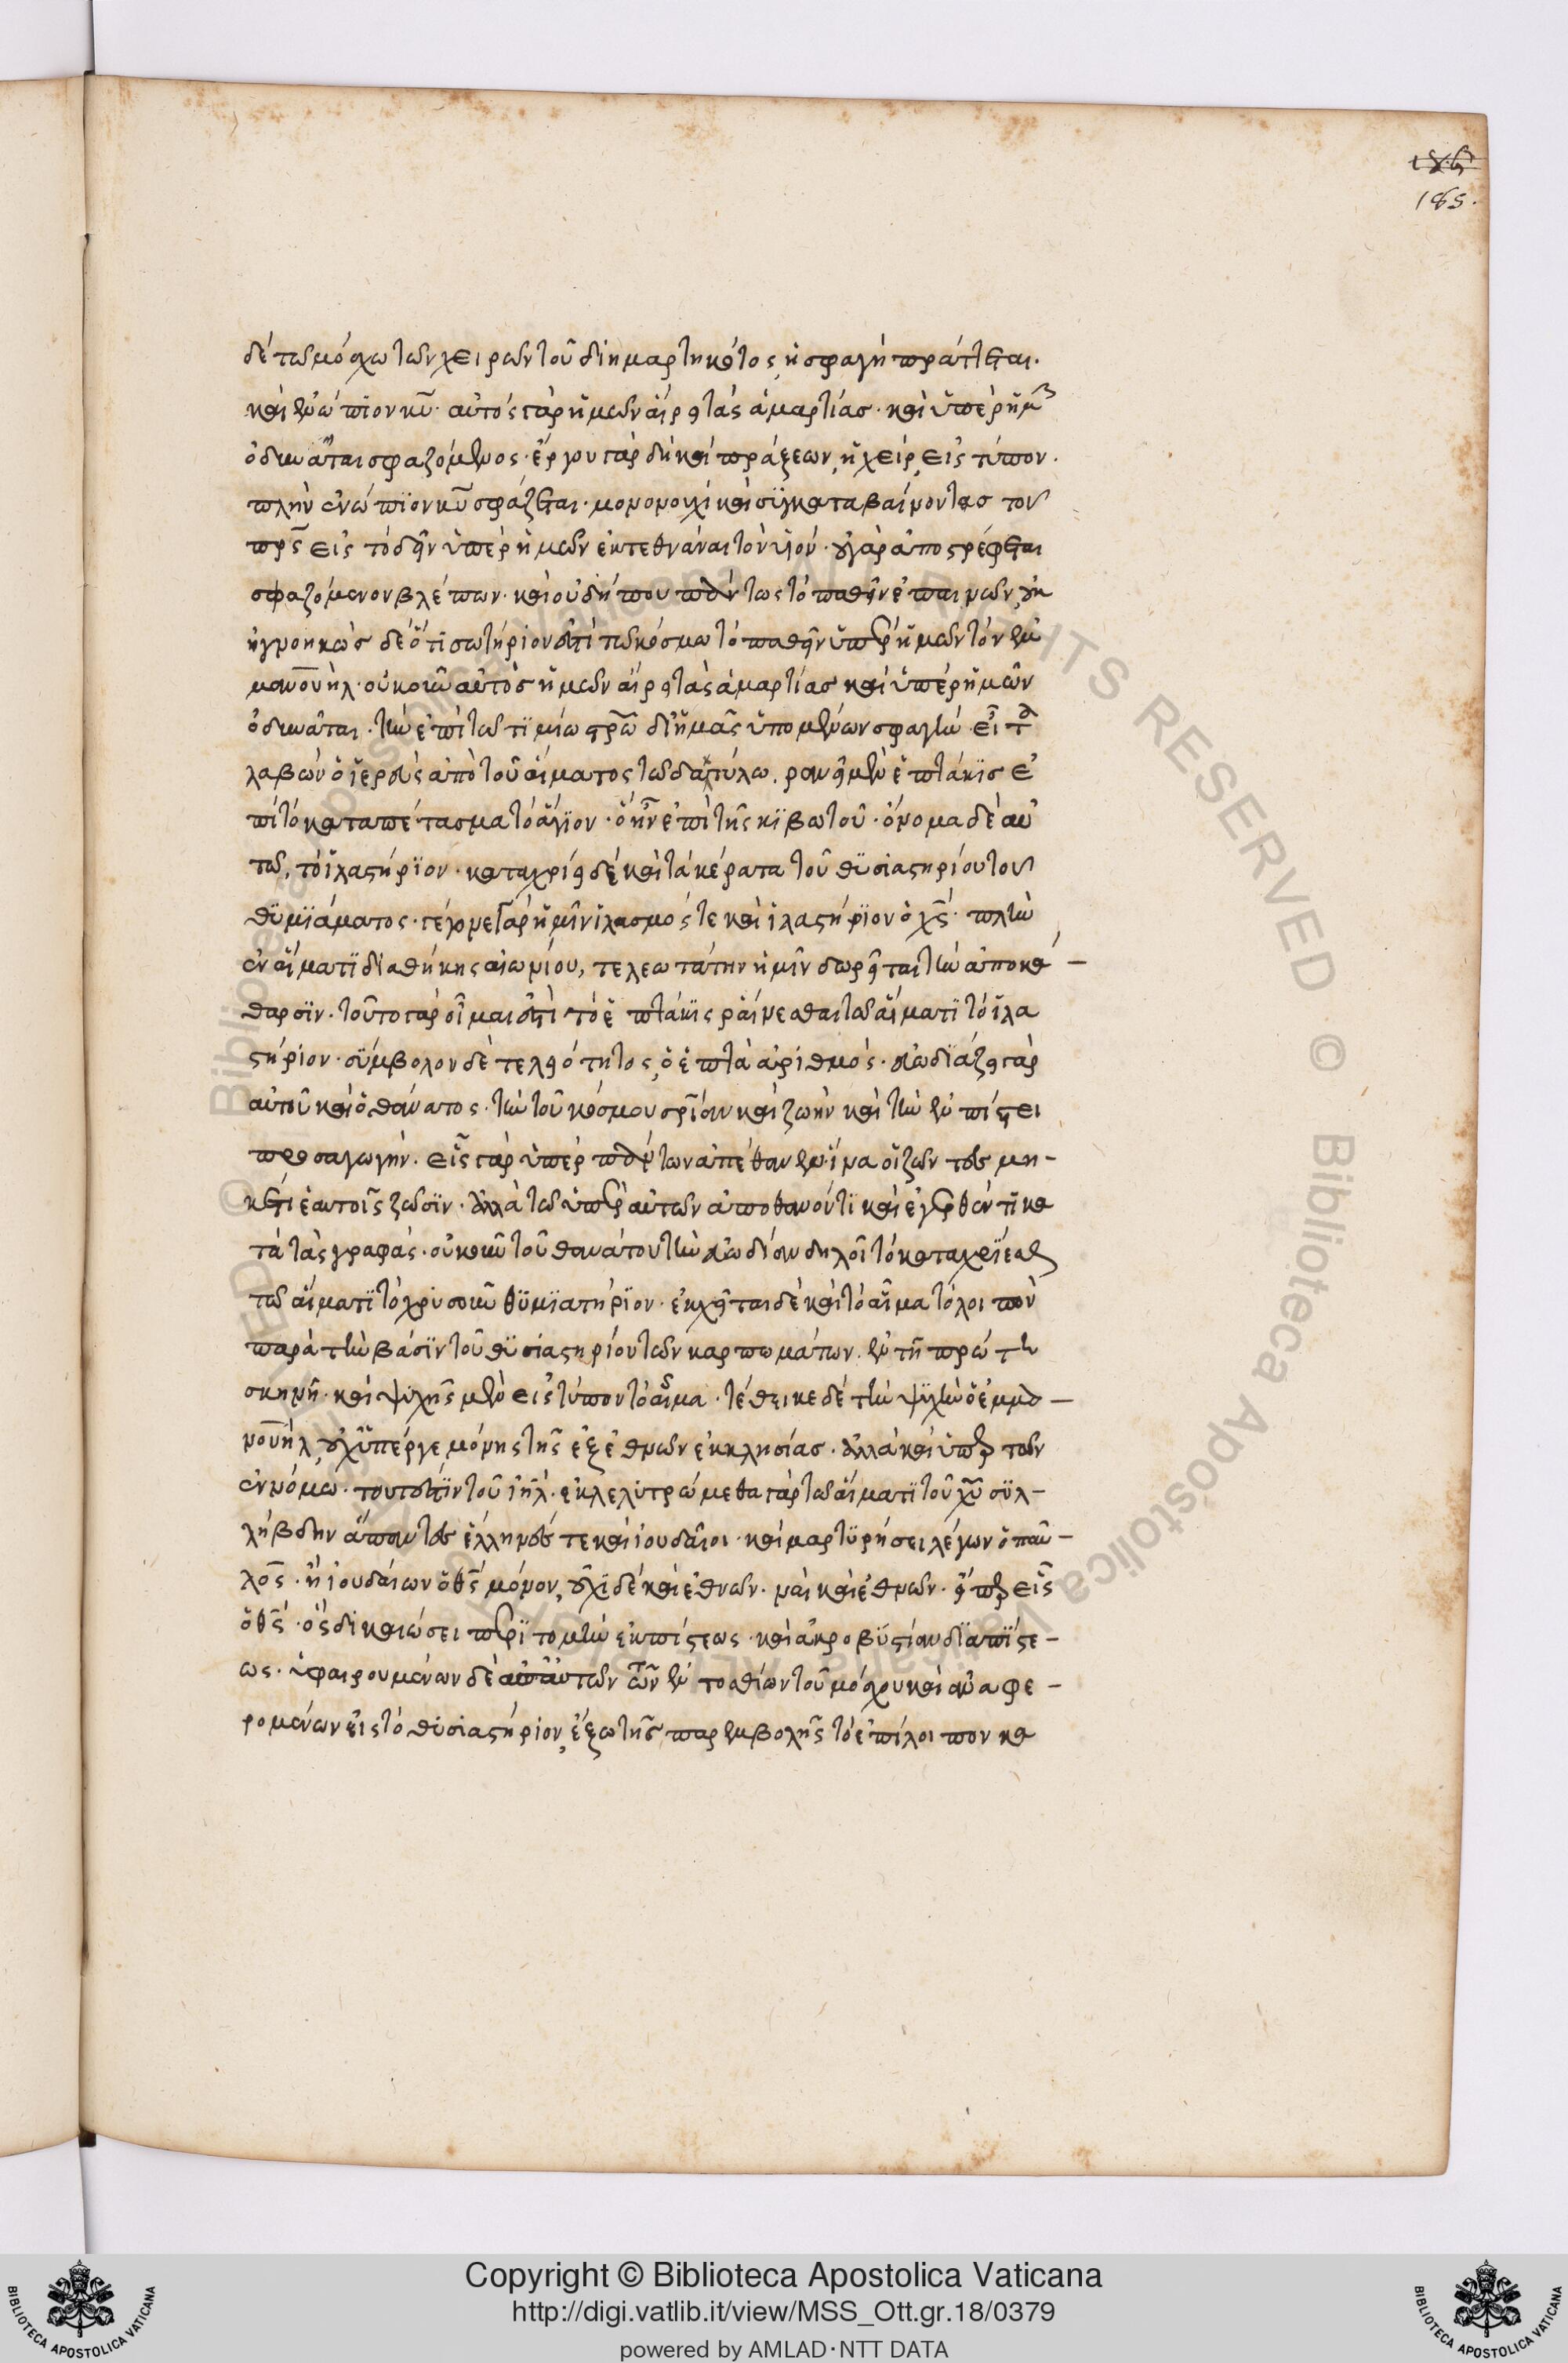 185.
δὲ τῷ μόσχῳ τῶν χειρῶν τοῦ διημαρτηκότος, ἡ σφαγὴ πράττεται.
καὶ ἐνώπιον κυ̅· αὐτὸς γὰρ ἡμῶν αἴρει τὰς ἁμαρτίας· καὶ ὑπὲρ ἡμῶν
ὀδυνᾶται σφαζόμενος· ἔργου γὰρ δὴ καὶ πράξεων, ἡ χεὶρ, εἰς τύπον.
πλὴν ἐνώπιον κυ̅ σφάζεται· μονονουχὶ καὶ συγκαταβαίνοντος τοῦ
πρς̅ εἰς τὸ δεῖν ὑπὲρ ἡμῶν ἐκτεθνάναι τὸν υἱόν· οὐ γὰρ ἀποστρέφεται
σφαζόμενον βλέπων· καὶ οὐ δήπου πάντως τὸ παθεῖν ἐπαινῶν, οὐκ
ἠγνοηκὼς δὲ ὅτι σωτήριον ἐστὶ τῷ κόσμῳ τὸ παθεῖν ὑπὲρ ἡμῶν τὸν ἐμ
μανουὴλ· οὐκοῦν αὐτὸς ἡμῶν αἴρει τὰς ἁμαρτίας καὶ ὑπὲρ ἡμῶν
ὀδυνᾶται· τὴν ἐπὶ τῷ τιμίῳ στρῶ δι' ἡμᾶς ὑπομένων σφαγήν· εἶτα
λαβὼν ὁ ἱερεὺς ἀπὸ τοῦ αἵματος τῷ δακτύλῳ, ρανεῖ μὲν ἑπτάκις ἐ
πὶ τὸ καταπέτασμα τὸ ἅγιον· ὃ ἦν ἐπὶ τῆς κιβωτοῦ· ὄνομα δὲ αὐ
τῷ, τὸ ἱλαστήριον· καταχρίει δὲ καὶ τὰ κέρατα τοῦ θυσιαστηρίου τοῦ
θυμιάματος· γέγονε γὰρ ἡμῖν ἱλασμός τε καὶ ἱλαστήριον ὁ χς̅· πλὴν
ἐν αἵματι διαθήκης αἰωνίου, τελεωτάτην ἡμῖν δωρεῖται τὴν ἀποκά–
θαρσιν· τοῦτο γὰρ οἶμαι ἐστὶ τὸ ἑπτάκις ραίνεσθαι τῷ αἵματι τὸ ἱλα
στήριον· σύμβολον δὲ τελειότητος, ὁ ἑπτὰ ἀριθμός· εὐωδιάζει γὰρ
αὐτοῦ καὶ ὁ θάνατος· τὴν τοῦ κόσμου σρι̅αν καὶ ζωὴν καὶ τὴν ἐν πίστει
προσαγωγήν. εἷς γὰρ ὑπὲρ πάντων ἀπέθανεν· ἵνα οἱ ζῶντες μη–
κέτι ἑαυτοῖς ζῶσιν· ἀλλὰ τῷ ὑπὲρ αὐτῶν ἀποθανόντι καὶ ἐγερθέντι κα
τὰ τὰς γραφάς· οὐκοῦν τοῦ θανάτου τὴν εὐωδίαν δηλοῖ τὸ καταχρίεσθαι
τῷ αἵματι τὸ χρυσοῦν θυμιατήριον· ἐκχεῖται δὲ καὶ τὸ αἷμα τὸ λοιπὸν
παρὰ τὴν βάσιν τοῦ θυσιαστηρίου τῶν καρπωμάτων. ἐν τῇ πρώτῃ
σκηνῇ· καὶ ψυχῆς μὲν εἰς τύπον τὸ αἷμα· τέθεικε δὲ τὴν ψυχὴν ὁ ἐμμα–
νουὴλ, οὐχ ὑπέρ γε μόνης τῆς ἐξ ἐθνῶν ἐκκλησίας· ἀλλὰ καὶ ὑπὲρ τῶν
ἐν νόμῳ· τουτέστιν τοῦ ιη̅λ· ἐκλελυτρώμεθα γὰρ τῷ αἵματι τοῦ χυ̅ συλ–
λήβδην ἅπαντες ἕλληνές τε καὶ ἰουδαῖοι· καὶ μαρτυρήσει λέγων ὁ παῦ–
λος· ἢ ἰουδαίων ὁ θς̅ μόνον, οὐχὶ δὲ καὶ ἐθνῶν· ναὶ καὶ ἐθνῶν· εἴπερ εἷς
ὁ θς̅· ὃς δικαιώσει περιτομὴν ἐκ πίστεως· καὶ ἀκροβυστίαν διὰ πίστε–
ως· ὑφαιρουμένων δὲ τῶν ἐντοσθίων τοῦ μόσχου καὶ ἀναφε–
ρομένων εἰς τὸ θυσιαστήριον, ἔξω τῆς παρεμβολῆς τὸ ἐπίλοιπον κα
Copyright © Biblioteca Apostolica Vaticana
http://digi.vatlib.it/view/MSS_Ott.gr.18/0379
powered by AMLAD·NTT DATA